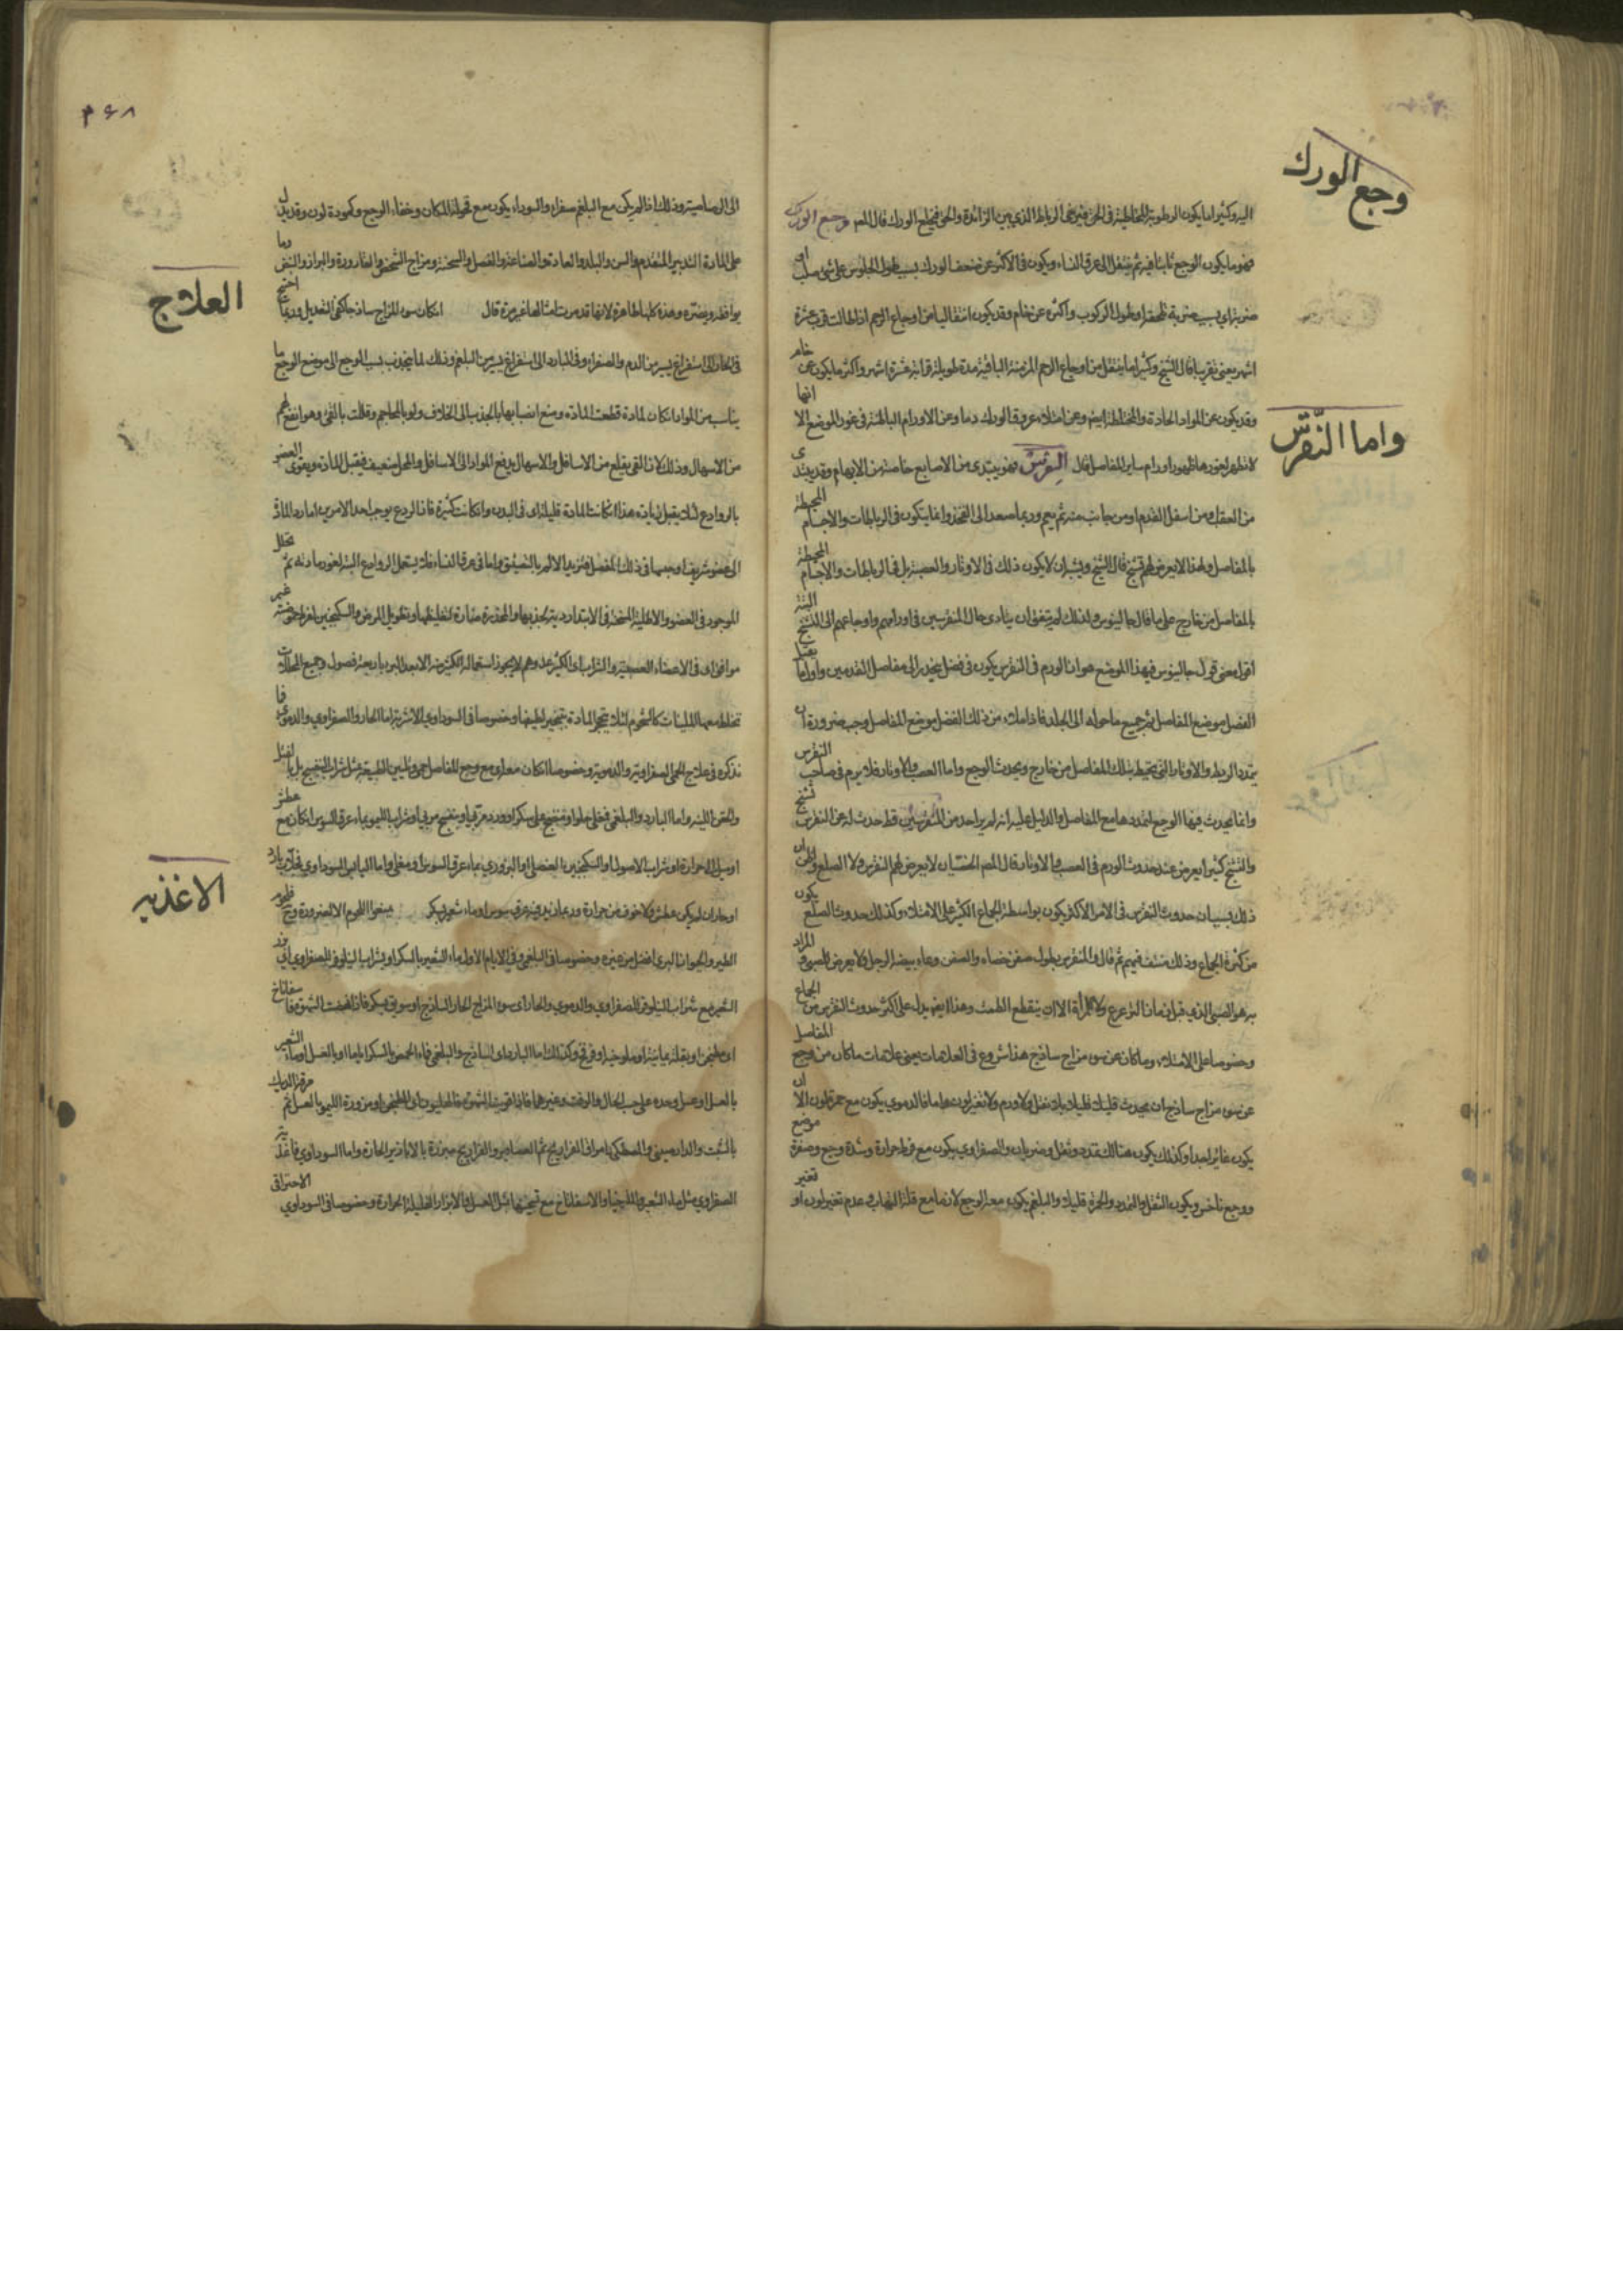 وجع الورك
اليه وكثيرا ما يكون الرطوبة المخاطية في الحق فيرخى الرباط الذي بين الزائدة والحق فيخلع الورك قال المص وجع الورك
فهو ما يكون الوجع ثابتا فيه ثم ينتقل الى عرق النساء ويكون في الاكثر عن ضعف الورك بسبب طول الجلوس على شئ صلب او
ضربة اي بسبب ضربة تلحقه او طول الركوب واكثره عن خام وقد يكون انتقاليا من اوجاع الرحم اذا طالت قرب عشرة
اشهر يعني تقريبا قال الشيخ وكثيرا ما ينتقل من اوجاع الرحم المزمنة الباقية مدة طويلة قرابة عشرة اشهر واكثر ما يكون عن خام
وقد يكون عن المواد الحادة والمختلطة ايضا وعن امتلاء عروق الورك دما وعن الاورام الباطنة في غور الموضع الا انها
لا تظهر لغورها ظهور اورام ساير المفاصل قال النقرس فهو يبتدى من الاصابع خاصة من الابهام وقد يبتدى
واما النقرس
من العقب ومن اسفل القدم او من جانب منه ثم يعم وربما صعد الى الفخذ وانما يتكون في الرباطات والاجسام المحيطة
بالمفاصل ولهذا لا يعرض لهم تشنج قال الشيخ ويشبه ان لا يكون ذلك في الاوتار والعصب بل في الرباطات والاجسام المحيطة
بالمفاصل من خارج على ما قال جالينوس ولذلك لم يتفق ان يتادى حال المنقرسين في اورامهم واوجاعهم الى التشنج البتة
اقول معنى قول جالينوس في هذا الموضع هو ان الورم في النقرس يكون في فضل ينحدر الى مفاصل القدمين واول ما يقبل
الفضل موضع المفاصل ثم جميع ما حوله الى الجلد فاذا امتلاء من ذلك الفضل موضع المفاصل وجب ضرورة ان
يتمدد الربط والاوتار التي تحيط بتلك المفاصل من خارج ويحدث الوجع واما العصب والاوتار فلا يرم في صاحب النقرس
وانما يحدث فيها الوجع لتمددها مع المفاصل والدليل عليه انه لم ير احد من المنقرسين قط حدث له عن النقرس تشنج
والتشنج كثيرا يعرض عند حدوث الورم في العصب والاوتار قال المص الخصيان لا يعرض لهم النقرس ولا الصلع
ذلك بسبب ان حدوث النقرس في الامر الاكثر يكون بواسطة الجماع الكثير على الامتلاء وكذلك حدوث الصلع يكون
من كثرة الجماع وذلك منتف فيهم ثم قال والمنقرس يطول صفن خصاه والصفن وعاء بيضة الرجل ولا يعرض للصبي والمراد
به هو الصبي الذي قبل زمان الترعرع ولا للمرأة الا ان ينقطع الطمث وهذا ايضا يدل على اكثر حدوث النقرس من الجماع
وخصوصا على الامتلاء وما كان عن سوء مزاج ساذج هذا شروع في العلامات يعني علامات ما كان من وجع المفاصل
عن سوء مزاج ساذج ان يحدث قليلا قليلا بلا ثقل ولا ورم ولا تغير لون فاما الدموي يكون مع حمرة لون الا ان
يكون غائرا جدا وكذلك يكون هنالك تمدد وثقل وضربان والصفراوي يكون مع فرط حرارة وشدة وجع وصفرة موضع
ووجع ناخس ويكون الثقل والتمدد والحمرة قليلا والبلغم يكون معه الوجع لازما مع قلة التهاب وعدم تغير لون او تغير
۴۶۸
الى الرصاصية وذلك اذا لم يكن مع البلغم صفراء والسوداء يكون مع قحولة المكان وخفاء الوجع وكمودة لون وقد يدل
على المادة التدبير المتقدم والسن والبلد والعادة والصناعة والفصل والسحنة ومزاج الشخص والقارورة والبراز والنبض وما
يوافقه ويضره وهذه كلها ظاهرة لانها قد مرت امثالها غير مرة قال ان كان سوء المزاج ساذجا كفى التعديل وربما احتيج
العلاج
في الحار الى استفراغ يسير من الدم والصفراء وفي البارد الى استفراغ يسير من البلغم وذلك لما ينجذب بسبب الوجع الى موضع الوجع ما
يناسب من المواد ان كان لمادة قطعت المادة ومنع انصبابها بالجذب الى الخلاف ولو بالمحاجم وقللت بالقئ وهو انفع لهم
من الاسهال وذلك لان القئ يقلع من الاسافل والاسهال يدفع المواد الى الاسافل والمحل ضعيف فيقبل المادة ويقوى العضو
بالروادع لئلا يقبل زيادة هذا اذا كانت المادة قليلة اى في البدن وان كانت كثيرة فان الردع يوجب احد الامرين اما رد المادة
الى عضو شريف او حبسها في ذلك المفصل فتزيد الالم بالتضييق واما في عرق النساء فلا يستعمل الروادع البتة لغور مادته ثم تحلل
الموجود في العضو والاطلية المسخنة في الابتداء ردية لجذبها والمخدرة ضارة لتغليظها وتطويل المرض والسكنجبين لفرط حموضته غير
موافق اى في الاعضاء العصبية والشراب اى الكثير عدوهم لا يجوز استعمال الكثير منه الا بعد البرء باربعة فصول وجميع المحللات
تخلط معها الملينات كالشحوم لئلا يتحجر المادة بتبخير لطيفها وخصوصا في السوداوي الاشربة اما الحار والصفراوي والدموي فما
نذكره في علاج الحمى الصفراوية والدموية وخصوصا ان كان معه اى مع وجع المفاصل حمى وتليين الطبيعة بمثل شراب البنفسج
والحقن اللينة واما البارد والبلغمي فمغلي حلو او منضج على سكر او ورد مربى او بنفسج مربى او شراب الليمو بماء عرق السوس ان كان مع عطش
او ميل الى حرارة او شراب الاصول او السكنجبين العنصلي او البزوري بماء عرق السوس او مغلي واما اليابس السوداوي
او حار ان لم يكن عطش ولا خوف من حرارة وربما زيد فيه عرق سوس او ماء شعير بسكر يمنعوا اللحوم الا لضرورة
الاغذية
الطير والحيوان البري افضل من غيره وخصوصا في البلغمي وفي الايام الاول ماء الشعير بالسكر او بشراب النيلوفر للصفراوي
الشعير مع شراب النيلوفر للصفراوي والدموي والحار اى سوء المزاج الحار الساذج او سويق بسكر فاذا نهضت الشهوة فاسفاناخ
او بقلة يمانية او ملوخية او قرع وكذلك اما البارد اى الساذج والبلغمي فماء الحمص بالسكر اياما او بالعسل او ماء الشعير
بالعسل او عسل وحده على حسب الحال والوقت وغيرهما فاذا قويت الشهوة او مزورة الليمو بالعسل ثم مرقة الديك
بالشبت والدارصيني والمصطكى او امراق الفراريج ثم العصافير والفراريج مبزرة بالابازير الحارة واما السوداوي فاغذية
الصفراوي مثل ماء الشعير والملوخيا والاسفاناخ مع تسخينها بمثل العسل والابزار القليلة الحرارة وخصوصا في السوداوي الاحتراقي